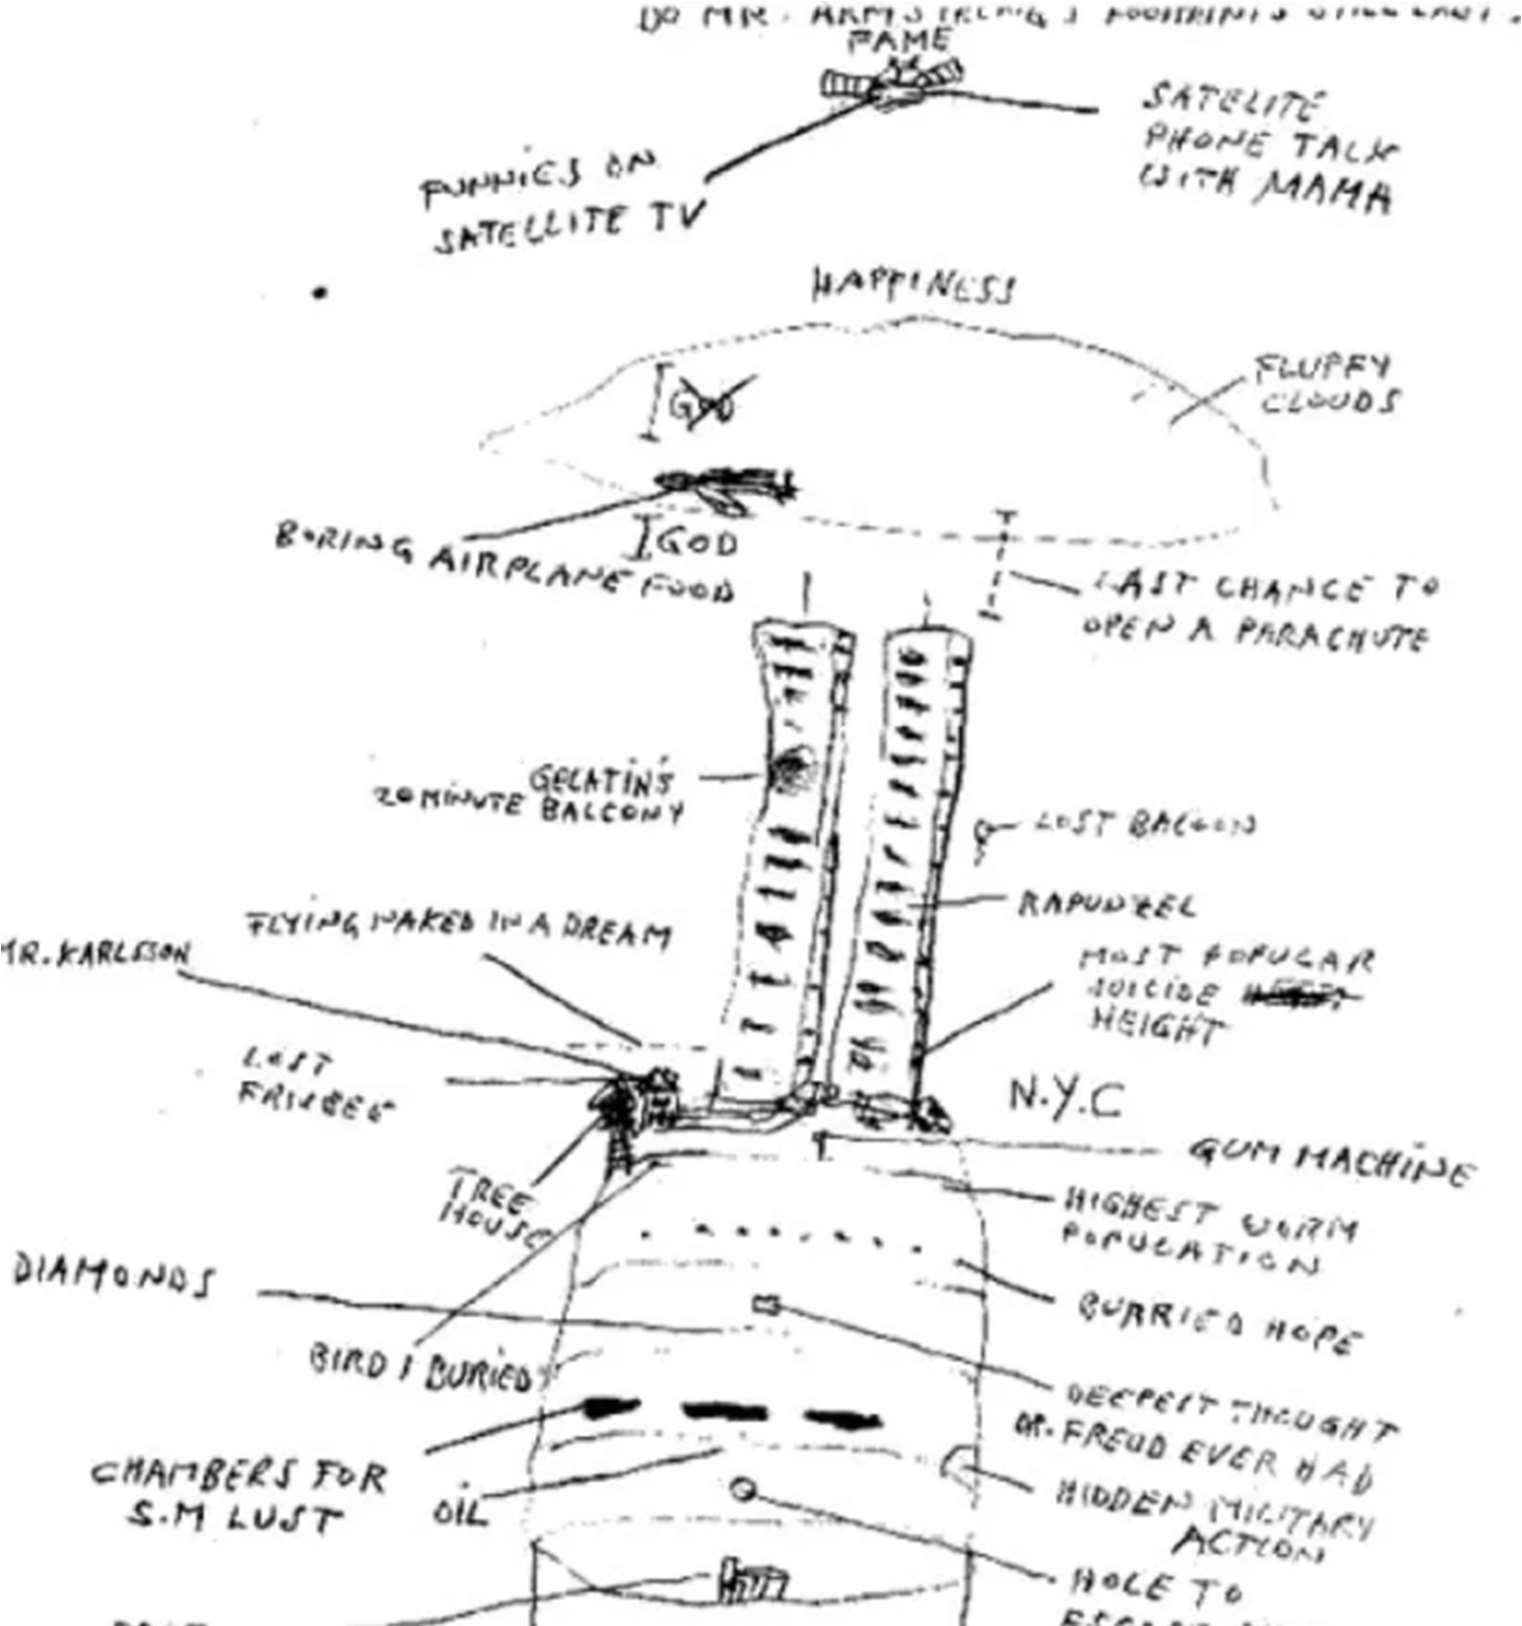 DO MR. ARMSTRONG'S FOOTPRINTS STILL LAST.
FAME
SATELITE
PHONE TALK
WITH MAMA
FUNNIES ON
SATELLITE TV
HAPPINESS
FLUFFY
CLOUDS
GOD
BORING AIRPLANE FOOD
GOD
LAST CHANCE TO
OPEN A PARACHUTE
GELATIN'S
20 MINUTE BALCONY
LOST BALLOON
RAPUNZEL
FLYING NAKED IN A DREAM
MR. KARLSSON
MOST POPULAR
SUICIDE
HEIGHT
LOST
FRISBEE
N.Y.C
GUM MACHINE
TREE
HOUSE
HIGHEST WORM
POPULATION
DIAMONDS
BURRIED HOPE
BIRD I BURIED
DEEPEST THOUGHT
DR. FREUD EVER HAD
CHAMBERS FOR
S.M LUST
OIL
HIDDEN MILITARY
ACTION
HOLE TO